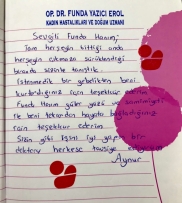 OP. DR. FUNDA YAZICI EROL
KADIN HASTALIKLARI VE DOĞUM UZMANI
Sevgili Funda Hanım;
Tam herşeyin bittiği anda
herşeyin çıkmaza sürüklendiği
anda sizinle tanıştık.
İstenmedik bir gebelikten beni
kurtardığınız için teşekkür ederim
Funda Hanım güler yüzü ve samimiyeti
ile beni tekrardan hayata bağladığınız
için teşekkür ederim
Sizin gibi işini iyi yapan bir
doktoru herkese tavsiye ediyorum
Aynur